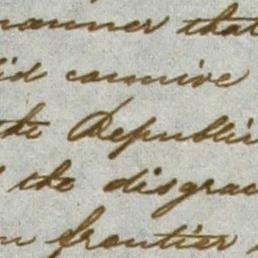 manner that
did connive
the Republi
the disgrac
frontier